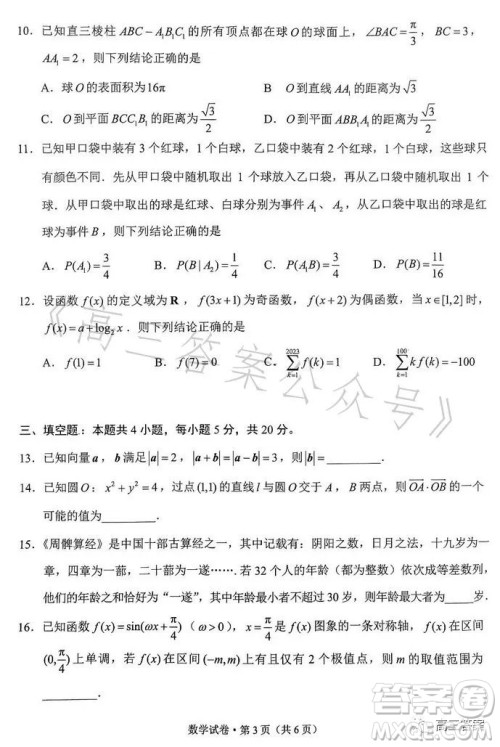 10. 已知直三棱柱 ABC－A₁B₁C₁ 的所有顶点都在球O的球面上，∠BAC=π/3，BC=3，
AA₁=2，则下列结论正确的是
A．球O的表面积为16π B．O到直线AA₁的距离为√3
C．O到平面BCC₁B₁的距离为√3/2 D．O到平面ABB₁A₁的距离为√3/2
11. 已知甲口袋中装有3个红球，1个白球，乙口袋中装有2个红球，1个白球，这些球只
有颜色不同．先从甲口袋中随机取出1球放入乙口袋，再从乙口袋中随机取出1
球．从甲口袋中取出的球是红球、白球分别为事件A₁、A₂，从乙口袋中取出的球是红
球为事件B，则下列结论正确的是
A．P(A₁)=3/4 B．P(B|A₂)=1/4 C．P(A₁B)=3/4 D．P(B)=11/16
12. 设函数f(x)的定义域为R，f(3x+1)为奇函数，f(x+2)为偶函数，当x∈[1,2]时，
f(x)=a+log₂x．则下列结论正确的是
A．f(1)=1 B．f(7)=0 C．∑(k=1→2023) f(k)=1 D．∑(k=1→100) kf(k)=-100
三、填空题：本题共4小题，每小题5分，共20分。
13. 已知向量a，b满足|a|=2，|a+b|=|a-b|=3，则|b|=______．
14. 已知圆O：x²+y²=4，过点(1,1)的直线l与圆O交于A，B两点，则OA·OB的一个
可能的值为______．
15. 《周髀算经》是中国十部古算经之一，其中记载有：阴阳之数，日月之法，十九岁为一
章，四章为一蔀，二十蔀为一遂……．若32个人的年龄(都为正整数)依次成等差数列，
他们的年龄之和恰好为“一遂”，其中年龄最小者不超过30岁，则年龄最大者为______岁．
16. 已知函数f(x)=sin(ωx+π/4)(ω>0)，x=π/4是f(x)图象的一条对称轴，f(x)在区间
(0,π/4)上单调，若f(x)在区间(-m,m)上有2个极值点，则m的取值范围是
______．
数学试卷·第3页（共6页）
《高三答案公众号》
高三答案
答案圈